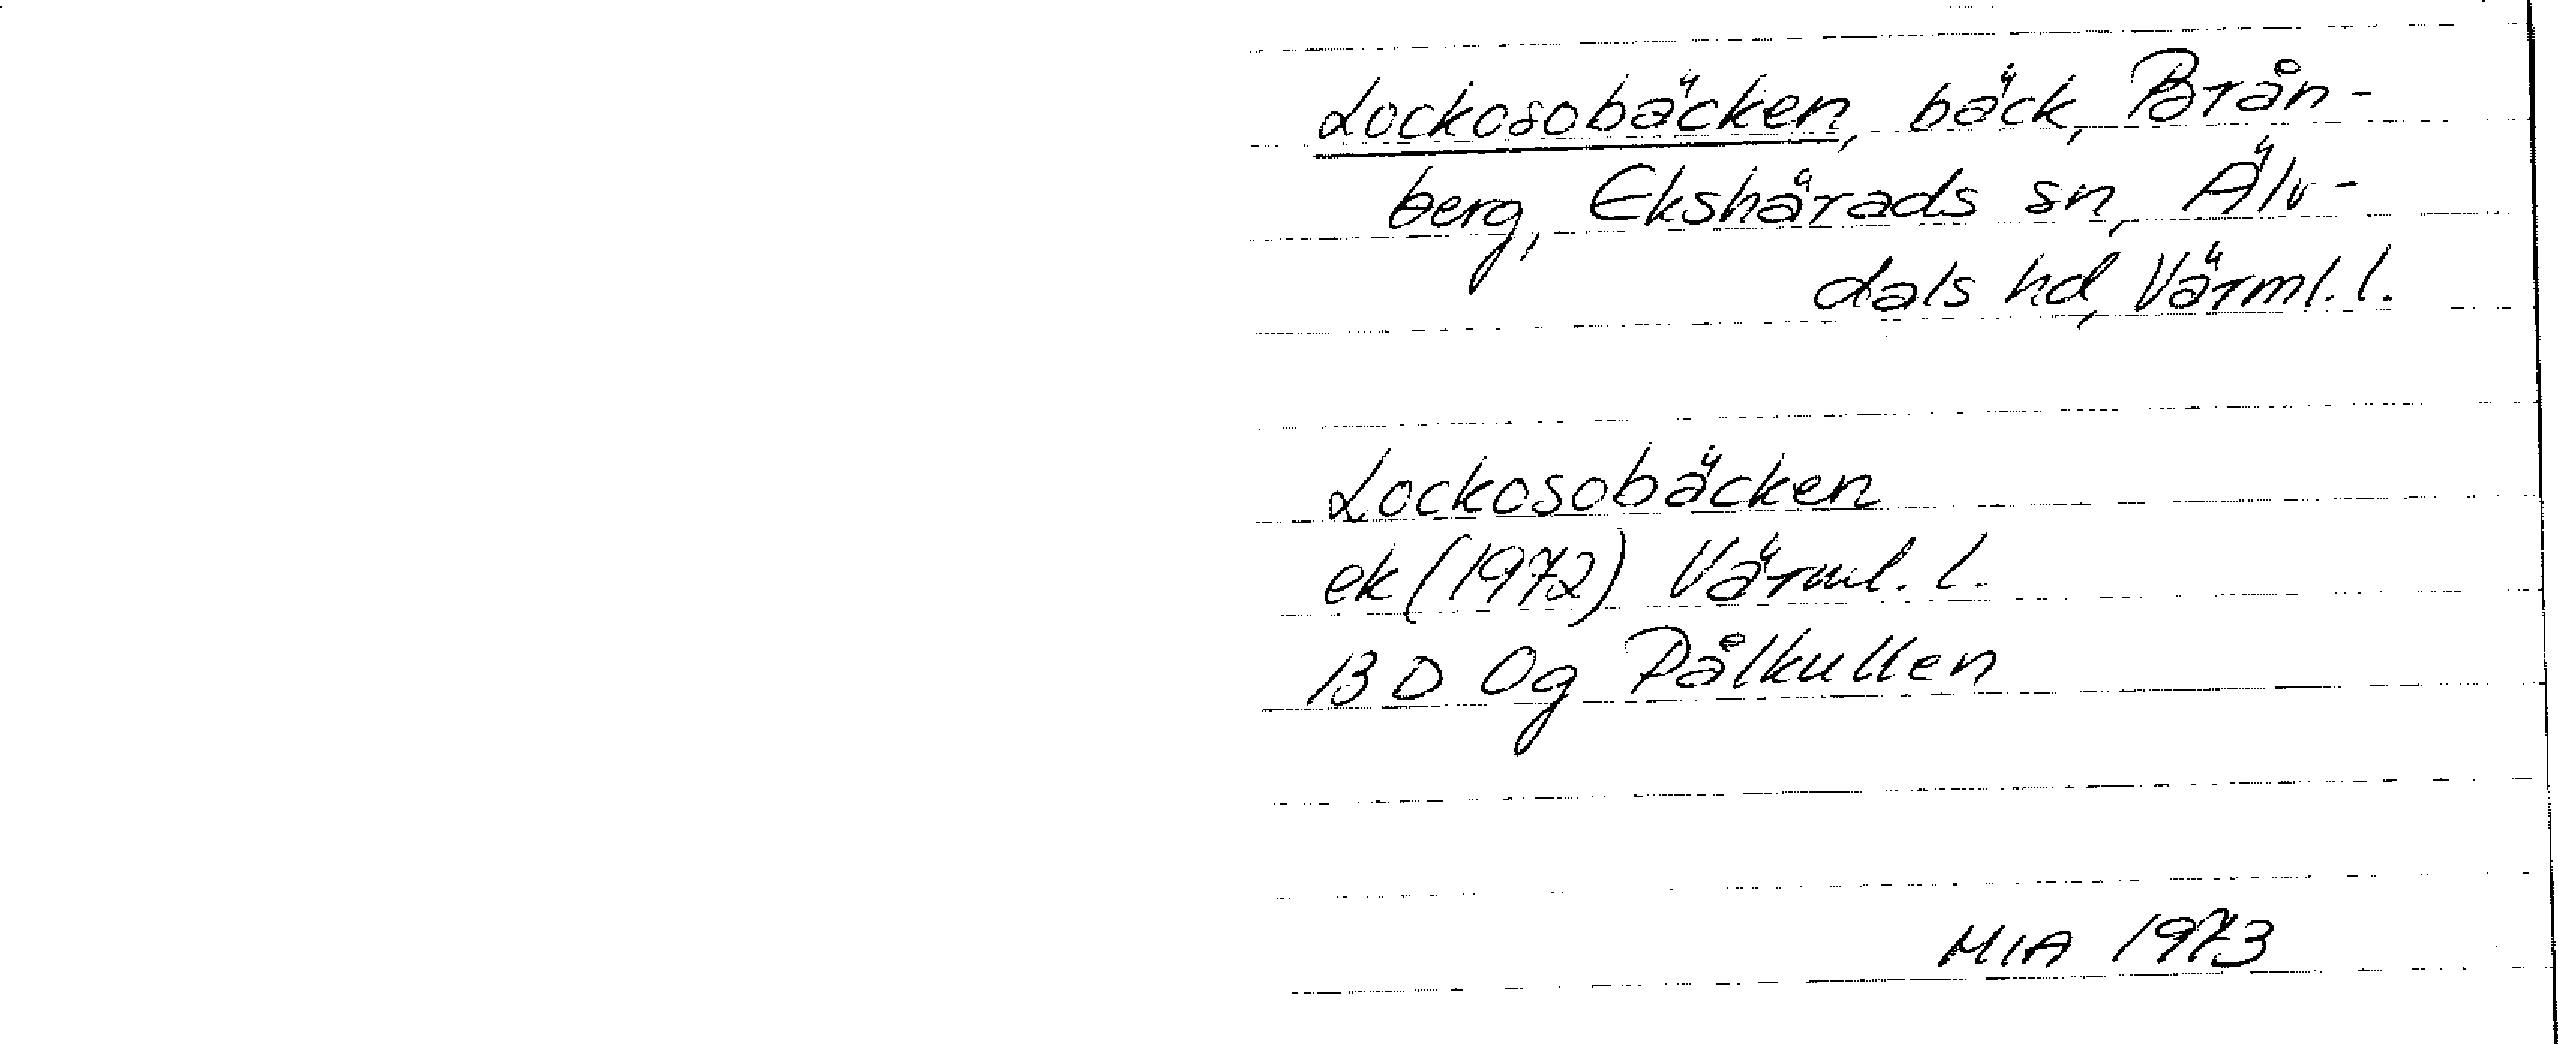 Lockosobäcken, bäck, Brån-
berg, Ekshärads sn, Älv-
dals hd, Värml. l.
Lockosobäcken
ek (1972) Värml. l.
13 D 0g Pålkullen
MIA 1973